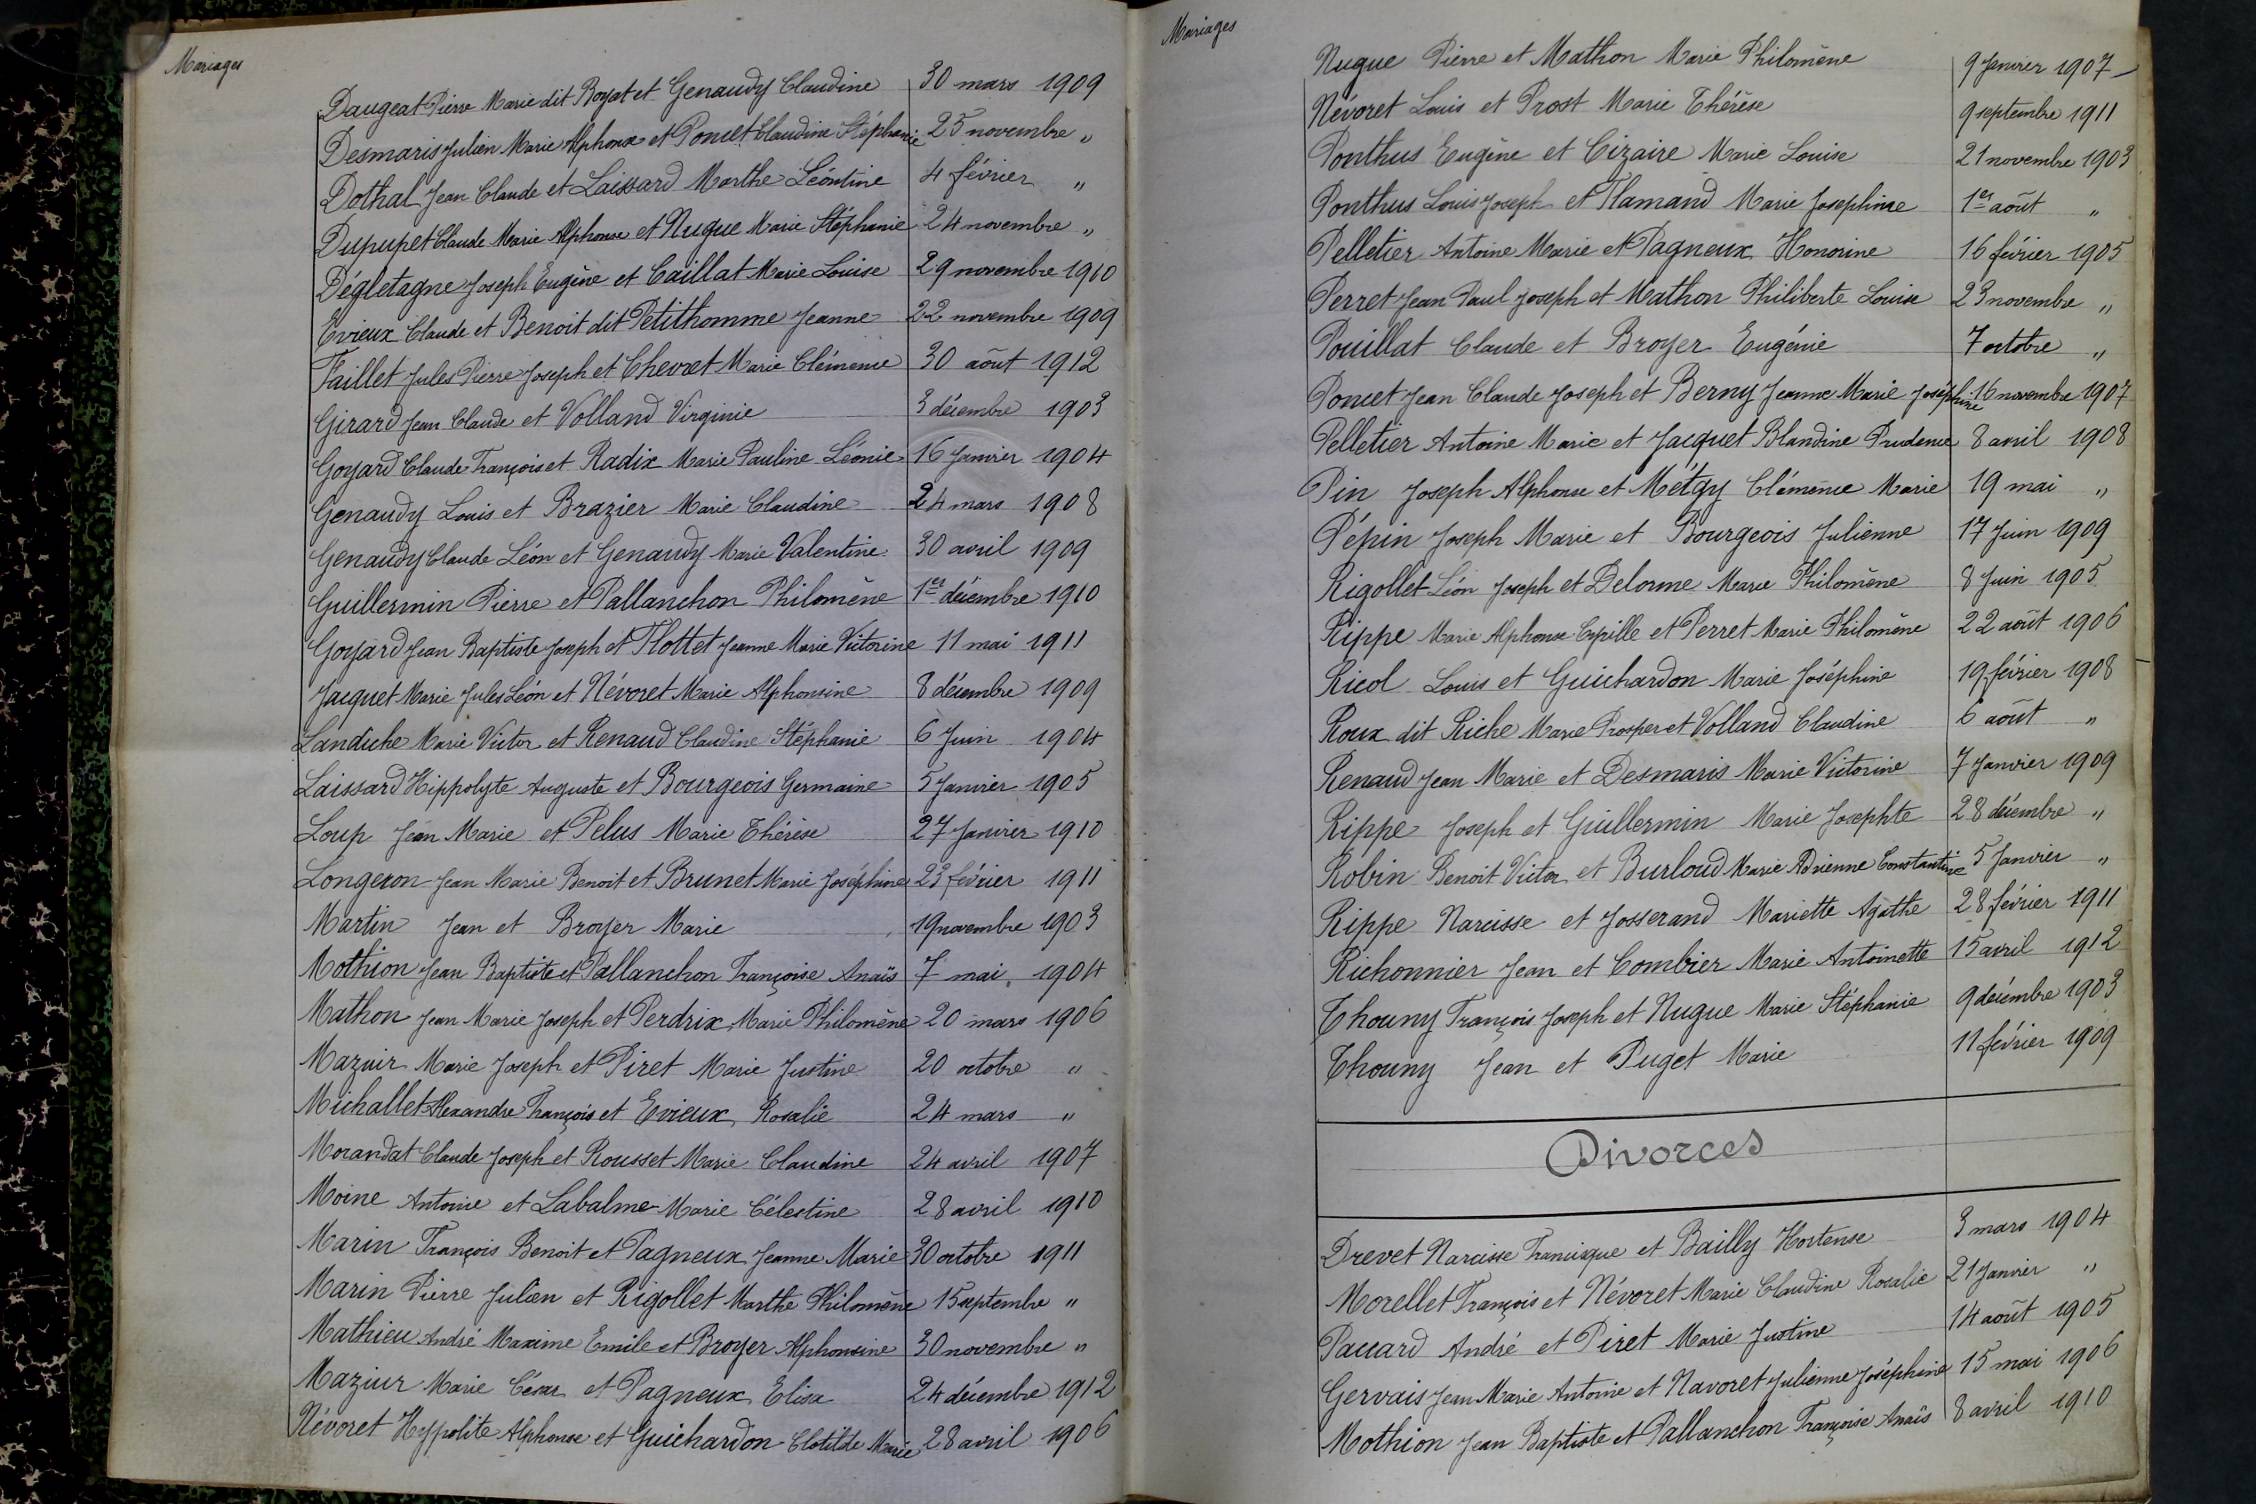 Mariages
Daugeat Pierre Marie dit Boyat et Genaudy Claudine 30 mars 1909
Desmaris Julien Marie Alphonse et Poncet Claudine Stéphanie 25 novembre "
Dothal Jean Claude et Laissard Marthe Léontine 4 février "
Dupupet Claude Marie Alphonse et Nugue Marie Stéphanie 24 novembre "
Dégletagne Joseph Eugène et Caillat Marie Louise 29 novembre 1910
Evieux Claude et Benoit dit Petithomme Jeanne 22 novembre 1909
Faillet Jules Pierre Joseph et Chevret Marie Clémence 30 août 1912
Girard Jean Claude et Volland Virginie 3 décembre 1903
Goyard Claude François et Radix Marie Pauline Léonie 16 Janvier 1904
Genaudy Louis et Brazier Marie Claudine 24 mars 1908
Genaudy Claude Léon et Genaudy Marie Valentine 30 avril 1909
Guillermin Pierre et Pallanchon Philomène 1er décembre 1910
Goyard Jean Baptiste Joseph et Flottet Jeanne Marie Victorine 11 mai 1911
Jacquet Marie Jules Léon et Névoret Marie Alphonsine 8 décembre 1909
Landiche Marie Victor et Renaud Claudine Stéphanie 6 Juin 1904
Laissard Hippolyte Auguste et Bourgeois Germaine 5 Janvier 1905
Loup Jean Marie et Pelus Marie Thérèse 27 Janvier 1910
Longeron Jean Marie Benoit et Brunet Marie Joséphine 23 février 1911
Martin Jean et Broyer Marie 19 novembre 1903
Mothion Jean Baptiste et Pallanchon Françoise Anaïs 7 mai 1904
Mathon Jean Marie Joseph et Perdrix Marie Philomène 20 mars 1906
Mazuir Marie Joseph et Piret Marie Justine 20 octobre "
Michallet Alexandre François et Evieux Rosalie 24 mars "
Morandat Claude Joseph et Rousset Marie Claudine 24 avril 1907
Moine Antoine et Labalme Marie Célestine 28 avril 1910
Marin François Benoit et Pagneux Jeanne Marie 30 octobre 1911
Marin Pierre Julien et Rigollet Marthe Philomène 15 septembre "
Mathieu André Maxime Emile et Broyer Alphonsine 30 novembre "
Maziur Marie César et Pagneux Elisa 24 décembre 1912
Névoret Hyppolite Alphonse et Guichardon Clotilde Marie 28 avril 1906
Mariages
Nugue Pierre et Mathon Marie Philomène 9 Janvier 1907
Névoret Louis et Prost Marie Thérèse 9 septembre 1911
Ponthus Eugène et Cizaire Marie Louise 21 novembre 1903
Ponthus Louis Joseph et Flamand Marie Josephine 1er août "
Pelletier Antoine Marie et Pagneux Honorine 16 février 1905
Perret Jean Paul Joseph et Mathon Philiberte Louise 23 novembre "
Pouillat Claude et Broyer Eugénie 7 octobre "
Poncet Jean Claude Joseph et Berny Jeanne Marie Joséphine 16 novembre 1907
Pelletier Antoine Marie et Jacquet Blandine Prudence 8 avril 1908
Pin Joseph Alphonse et Métgy Clémence Marie 19 mai "
Pépin Joseph Marie et Bourgeois Julienne 17 Juin 1909
Rigollet Léon Joseph et Delorme Marie Philomène 8 Juin 1905
Rippe Marie Alphonse Cyrille et Perret Marie Philomène 22 août 1906
Ricol Louis et Guichardon Marie Joséphine 19 février 1908
Roux dit Riche Marie Prosper et Volland Claudine 6 août "
Renaud Jean Marie et Desmaris Marie Victorine 7 Janvier 1909
Rippe Joseph et Guillermin Marie Josephte 28 décembre "
Robin Benoit Victor et Burloud Marie Adrienne Constantine 5 Janvier "
Rippe Narcisse et Josserand Mariette Agathe 28 février 1911
Richonnier Jean et Combier Marie Antoinette 15 avril 1912
Thouny François Joseph et Nugue Marie Stéphanie 9 décembre 1903
Thouny Jean et Puget Marie 11 février 1909
Divorces
Drevet Narcisse Francisque et Bailly Hortense 3 mars 1904
Morellet François et Névoret Marie Claudine Rosalie 21 Janvier "
Paccard André et Piret Marie Justine 14 août 1905
Gervais Jean Marie Antoine et Navoret Julienne Joséphine 15 mai 1906
Mothion Jean Baptiste et Pallanchon Françoise Anaïs 8 avril 1910